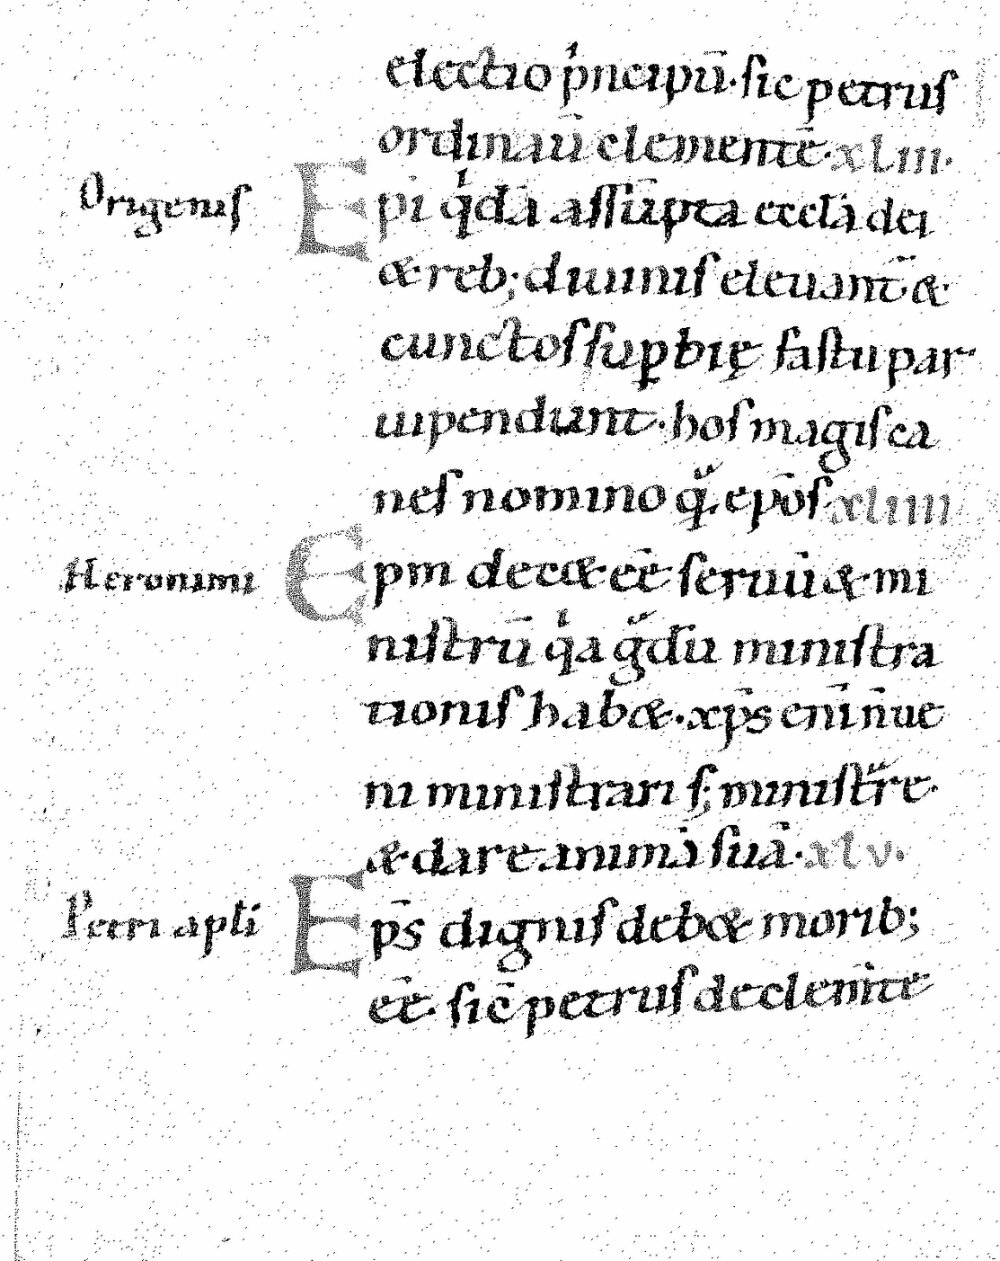 electio pͥncipū· sic petrus
ordinaū clementē· xLiii·
Origenis
Epi qͥdā assūpta eccła dei
& reb; diuinis eleuant̄ &
cunctos suꝑbię fastu par
uipendunt· hos magis ca
nes nomino qͣ̄ ep̄os· xLiiii
Heronimi
Epm dec& eē seruū & mi
nistrū qͥa gͣdū ministra
tionis hab&· xp̄s eni̅ n̄ ue
ni ministrari s; ministͣre·
& dare animā suā· xLv·
Petri apłi
Ep̄s dignus deb& morib;
eē· sic̄ petrus de clem̄te